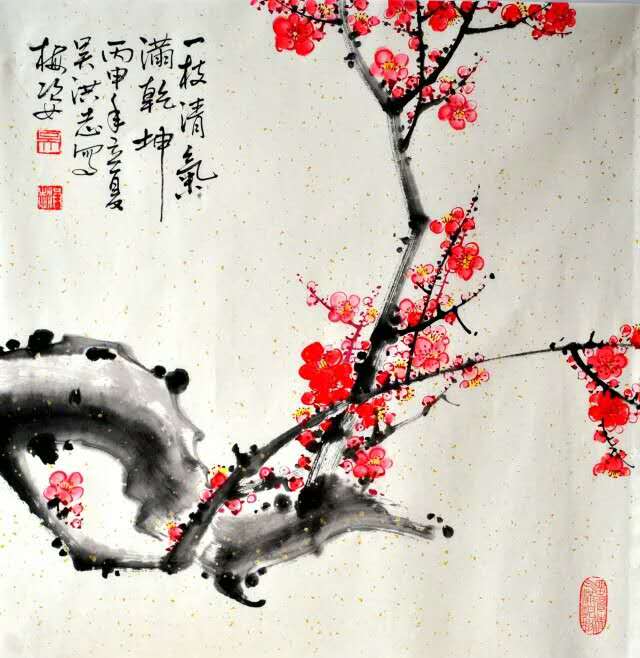 一枝清氣
滿乾坤
丙申年立夏
吴洪志寫
梅姿